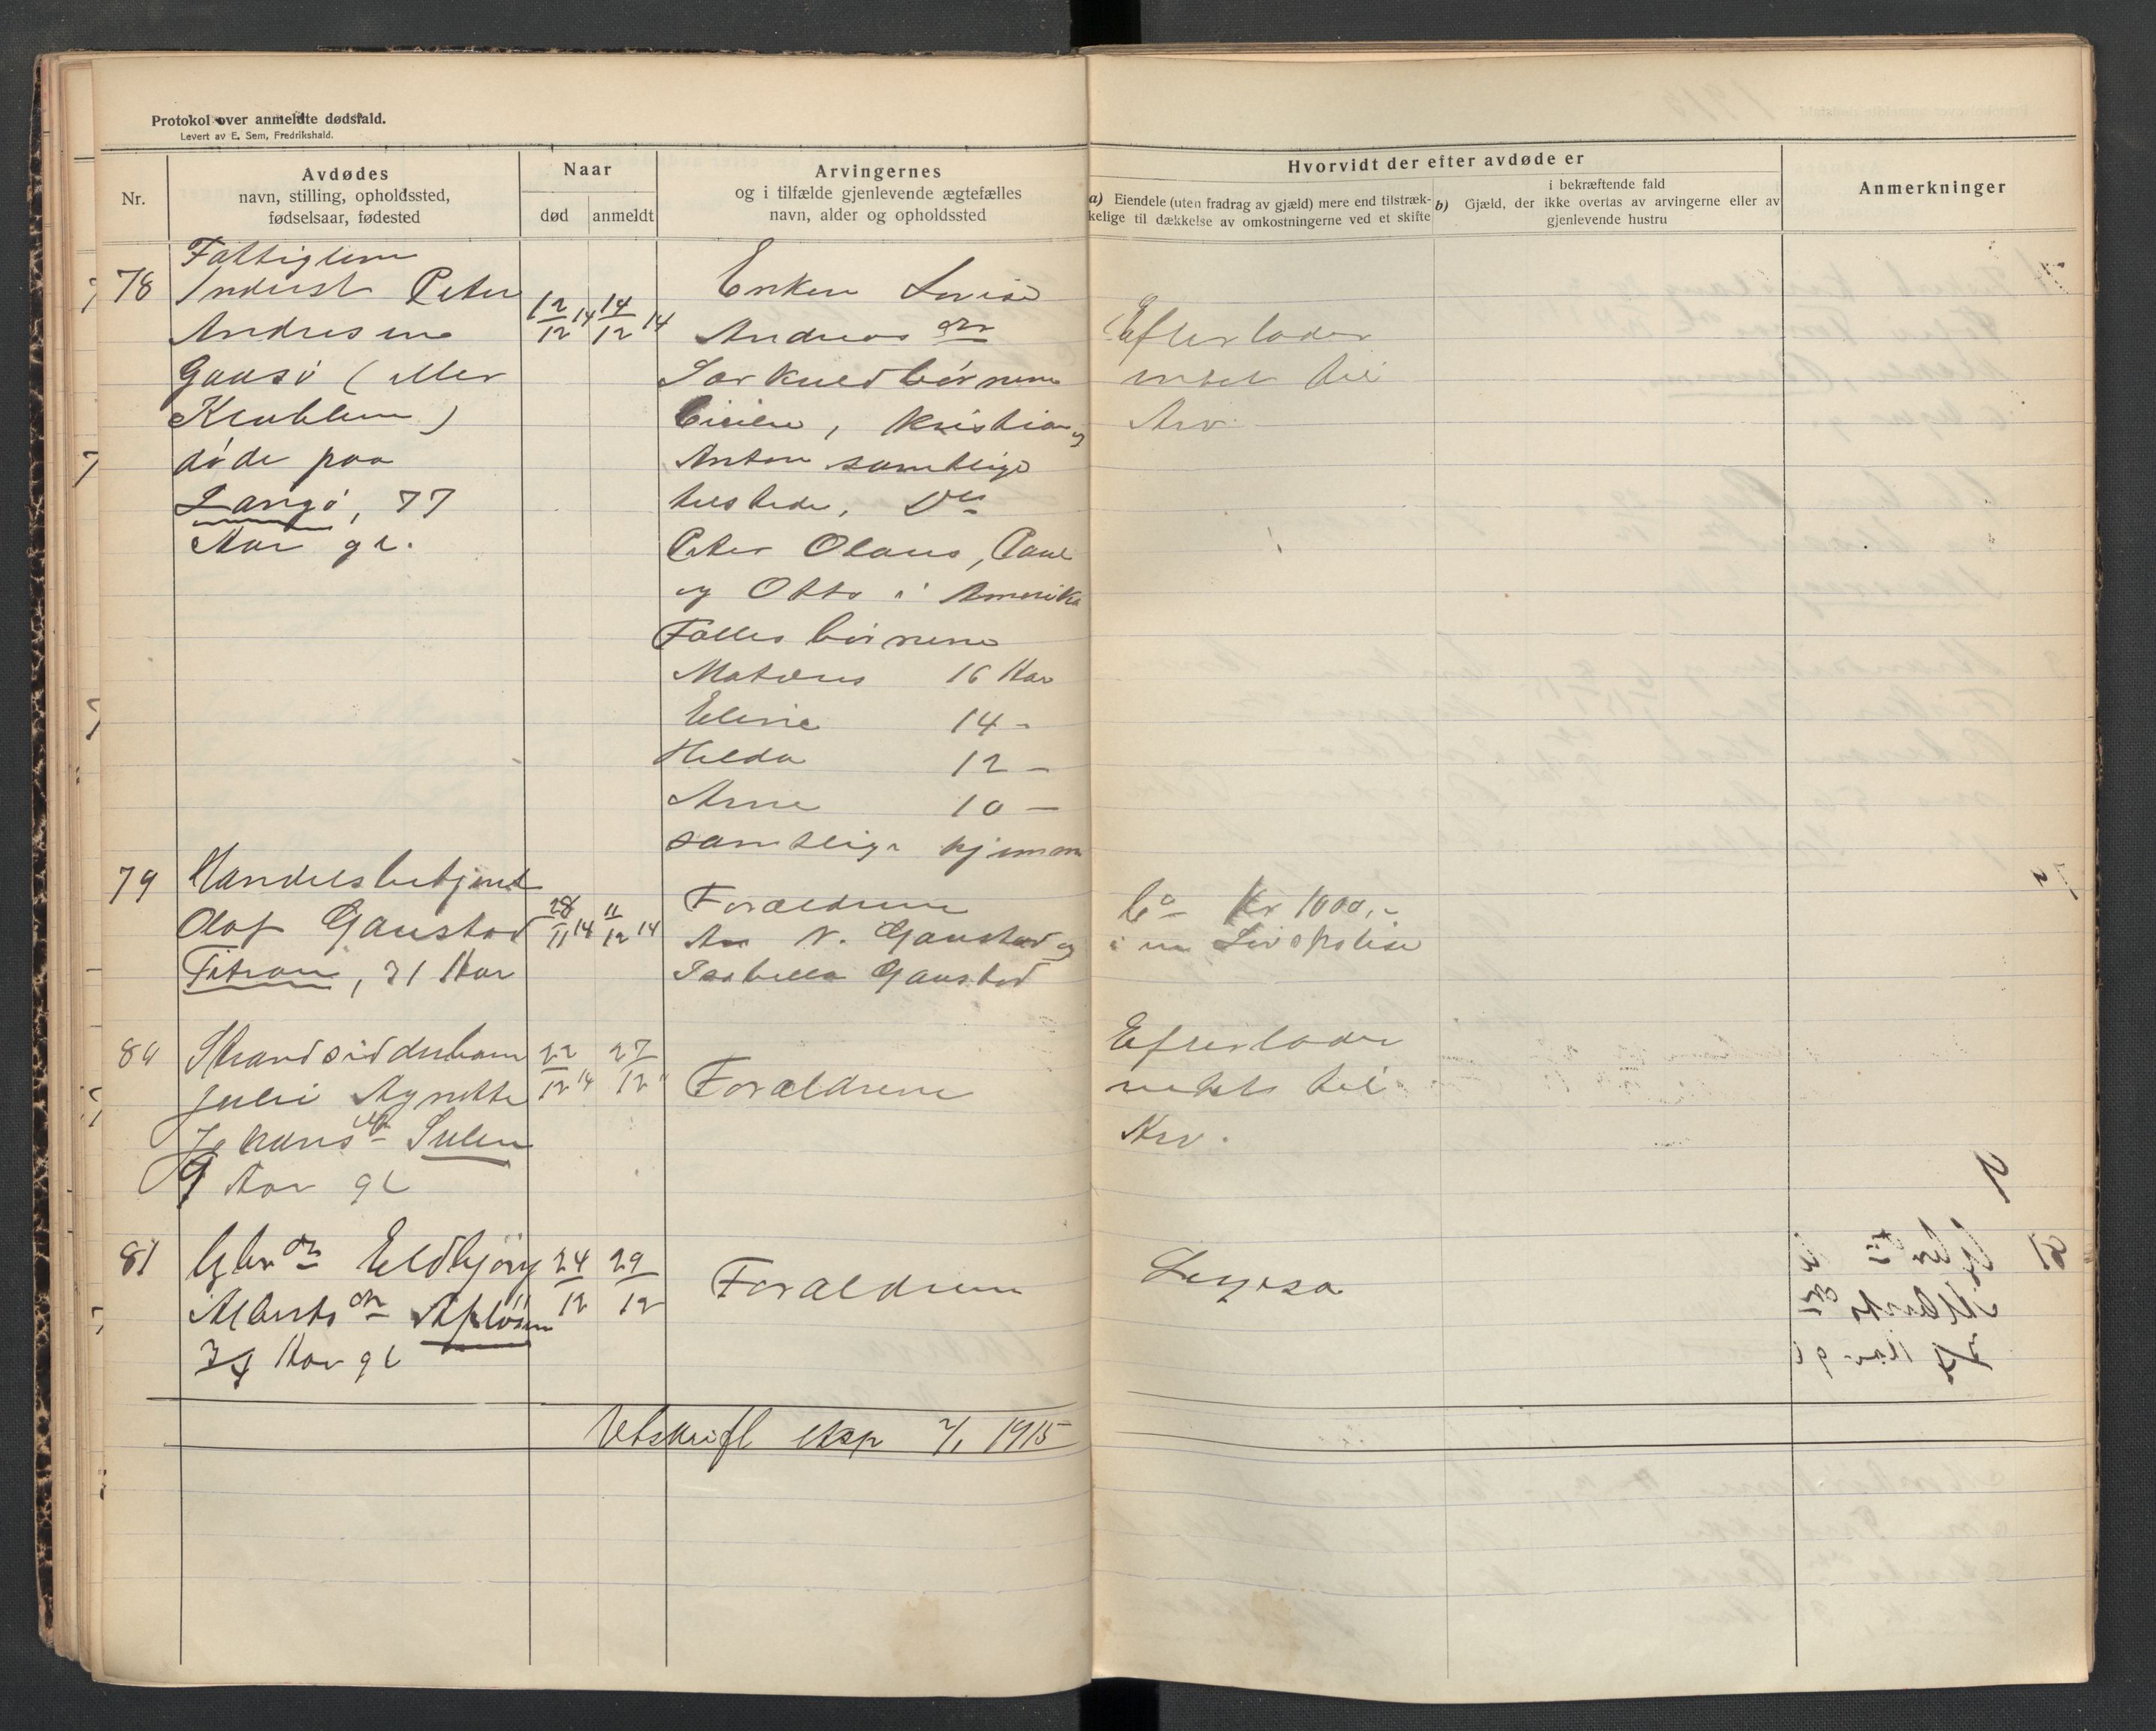 Protokol over anmeldte dødsfald.
Levert av E. Sem, Fredrikshald.
Nr.
Avdødes
navn, stilling, opholdssted,
fødselsaar, fødested
Naar
død
anmeldt
Arvingernes
og i tilfælde gjenlevende ægtefælles
navn, alder og opholdssted
Hvorvidt der efter avdøde er
a) Eiendele (uten fradrag av gjæld) mere end tilstræk-
kelige til dækkelse av omkostningerne ved et skifte
i bekræftende fald
b) Gjæld, der ikke overtas av arvingerne eller av
gjenlevende hustru
Anmerkninger
78
Fattiglem
Inderst Peter
Andresen
Gaasø (eller
død paa
Langø, 77
Aar gl.
12/12 14
14/12 14
Enken Lovise
Andreas dtr
Særkuldbørnene
Kristian og
Anton samtlige
tilstede, Des
Peter Olaus, Paul
og Otto i Amerika
Fællesbørnene
Mateus 16 Aar
Eline 14 -
Hilda 12 -
Arne 10 -
samtlige hjemme
Efterlader
intet til
Arv.
79
Handelsbetjent
Olaf Gaustad
Titran, 21 Aar
28/11 14
11/12 14
Forældrene
N. Gaustad og
Isabella Gaustad
Ca Kr 1000,-
i en Livspolise
80
Strandsidderbarn
Juli Agnette
Johans dtr Sulen
9 Aar gl
22/12 14
27/12 "
Forældrene
Efterlader
intet til
Arv.
81
Gbr dtr Eldbjørg
Alberts dtr
Aar gl
24/12
29/12
Forældrene
Ligesa
Utskrift eksp 2/1 1915